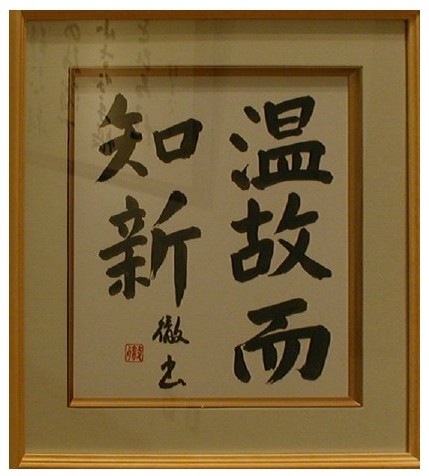 温故而
知新
徹書